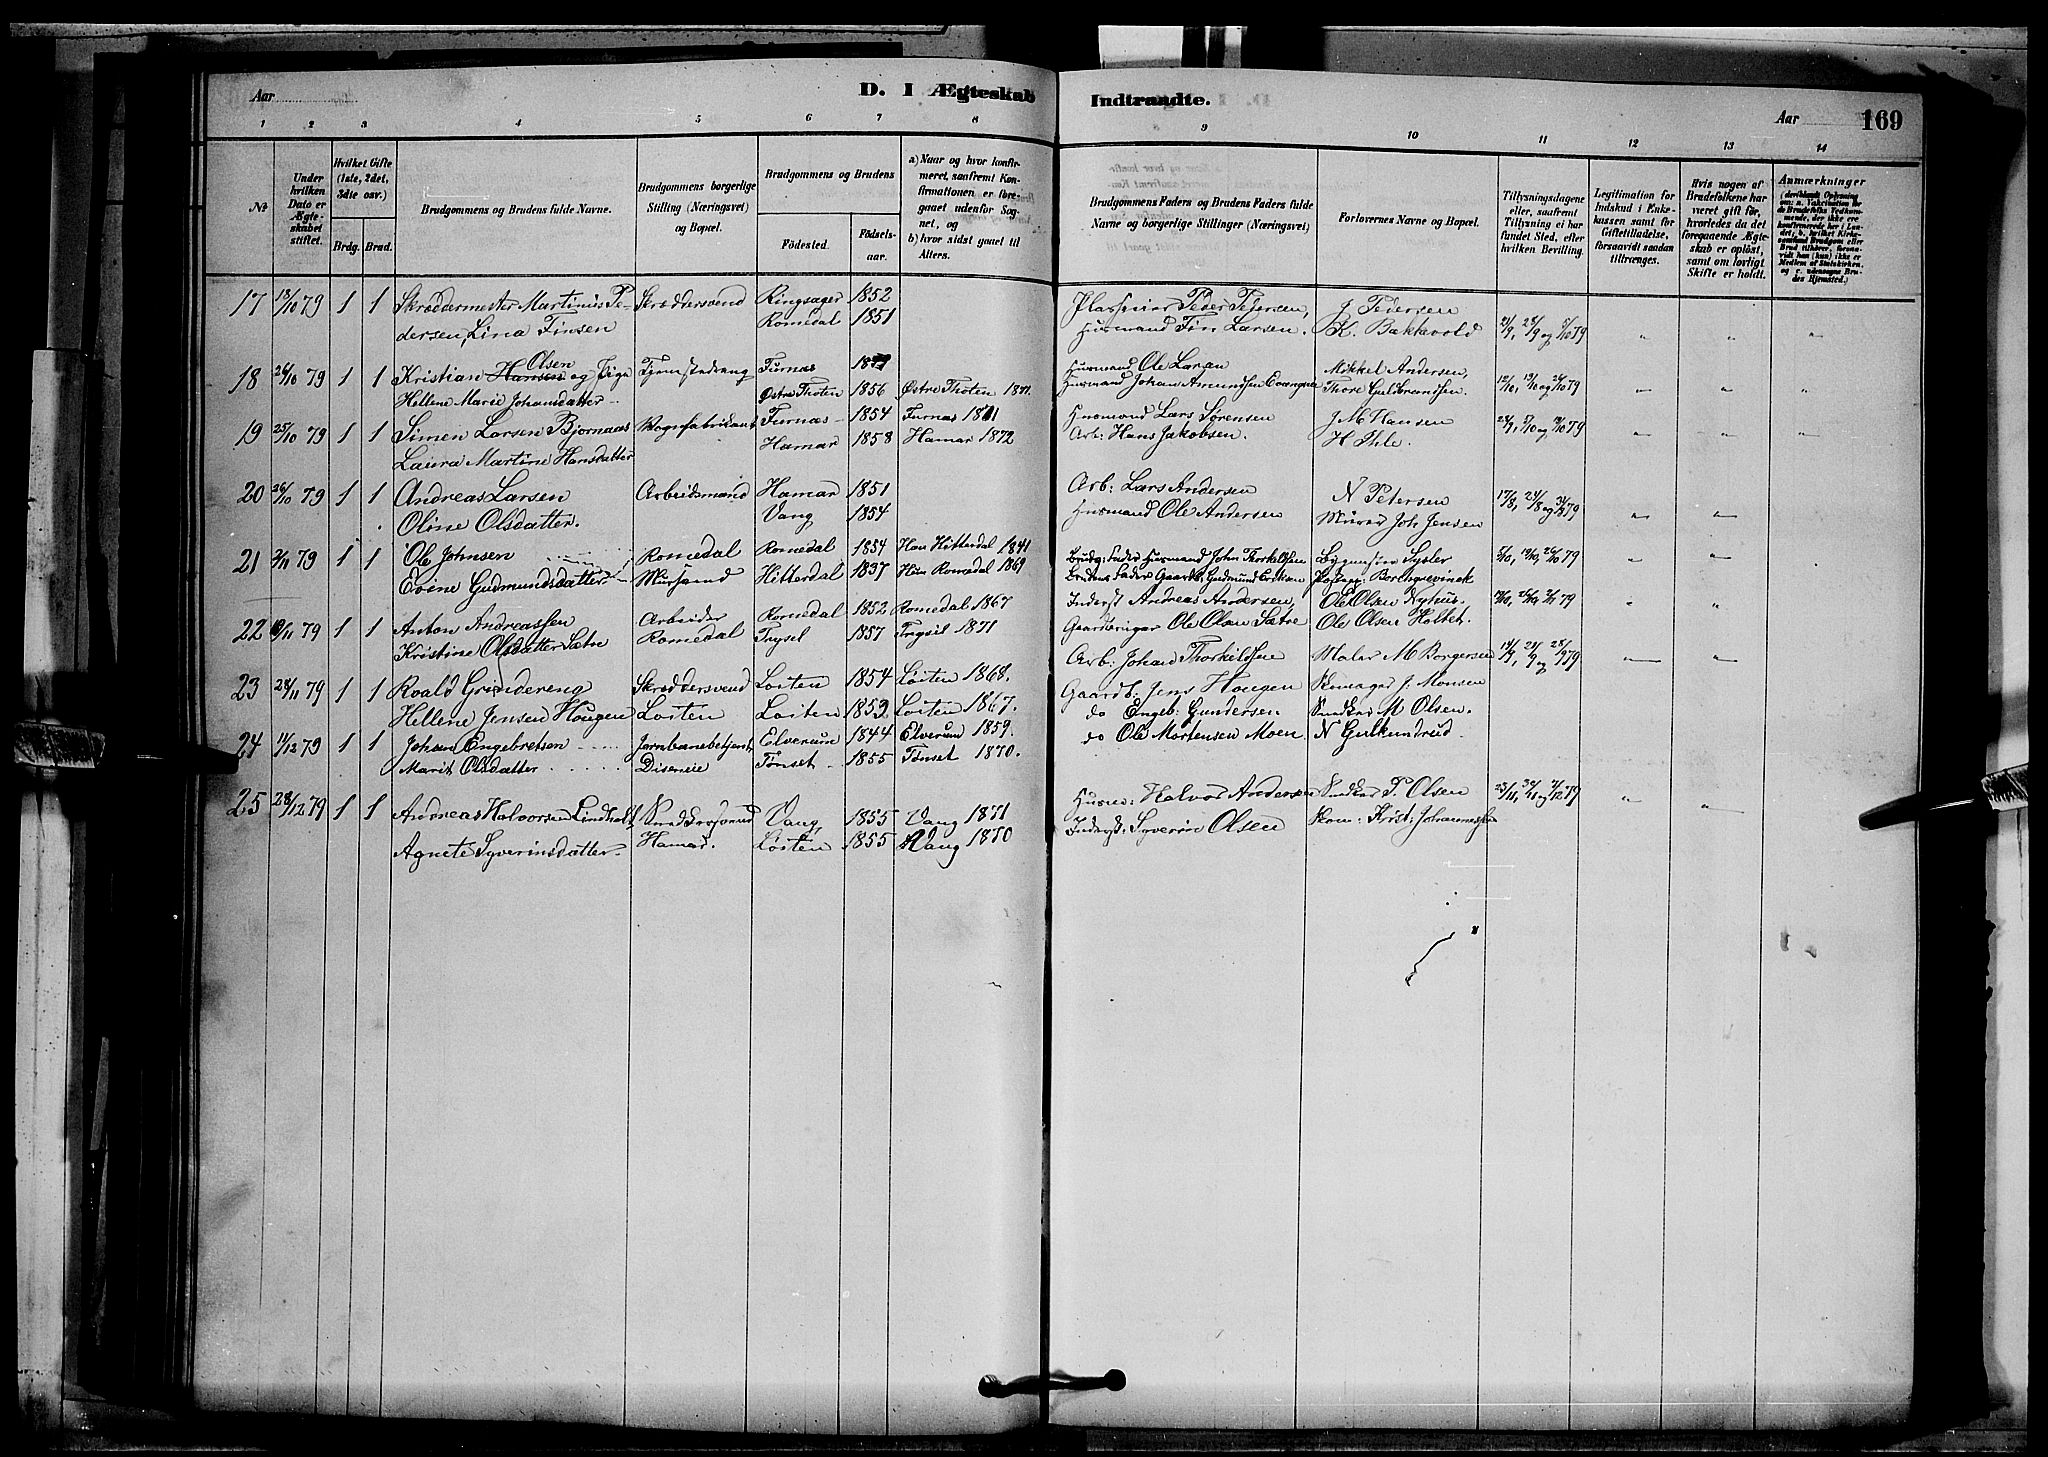 Aar
D. I Ægteskab
Indtrandte.
Aar
169
1 2 3 4 5 6 7 8
9 10 11 12 13 14
№
Under hvilken Dato er Ægteskabet stiftet.
Hvilket Gifte (1ste, 2det, 3die osv.)
Brdg. Brud.
Brudgommens og Brudens fulde Navne.
Brudgommens borgerlige Stilling (Næringsvei) og Bopæl.
Brudgommens og Brudens
Fødested.
Fødselsaar.
a) Naar og hvor konfirmeret, saafremt Konfirmationen er foregaaet udenfor Sognet, og
b) hvor sidst gaaet til Alters.
Brudgommens Faders og Brudens Faders fulde Navne og borgerlige Stillinger (Næringsvei)
Forlovernes Navne og Bopæl.
Tillysningsdagene eller, saafremt Tillysning ei har fundet Sted, efter hvilken Bevilling.
Legitimation for Indskud i Enkekassen samt for Giftetilladelse, forsaavidt saadan tiltrænges.
Hvis nogen af Brudefolkene har været gift før, hvorledes da det foregaaende Ægteskab er opløst, samt om lovligt Skifte er holdt.
Anmærkninger
17 13/10 79 1 1 Skræddermester Martinus Pe- Skræddersvend Ringsager 1852 Pladseier Peder Pedersen, J Pedersen
dersen, Lina Finsen Romedal 1851 Husmand Finn Larsen. K. Bakkevold 21/9, 28/9 og 5/10 79 " " "
Olsen
18 26/10 79 1 1 Kristian Hansen og Pige Furnæs Husmand Ole Larsen Mikkel Andersen,
Hellene Marie Johansdatter Østre Thoten 1856 Østre Thoten 1871. Husmand Johan Amundsen Thore Guldbrandsen. 12/10, 19/10 og 26/10 79 " " "
19 25/10 79 1 1 Simen Larsen Bjørnaas Vognfabrikant Furnæs 1854 Furnæs 1871 Husmand Lars Sørensen J M Hansen
Laura Martine Hansdatter Hamar 1858 Hamar 1872 Arb: Hans Jakobsen. H Ihle. " " "
20 26/10 79 1 1 Andreas Larsen Arbeidsmand Hamar 1851 Arb: Lars Andersen N Petersen
Oline Olsdatter. Vang 1854 Husmand Ole Andersen Murer Joh Jensen 17/8, 24/8 og 31/8 79 " "
21 2/11 79 1 1 Ole Johnsen Romedal Romedal 1854 Han Hitterdal 1841 Brudg: Fader Husmand John Thorkelsen
Evine Gudmundsdatter Mursvend Hitterdal 1837 Hun Romedal 1869 Brudens Fader Gaardb. Gudmund Eriksen Borchgrevink 5/10, 12/10, 26/10 79 " "
22 79 1 1 Anton Andreassen Arbeider Romedal 1852 Romedal 1867 Inderst Andreas Andersen, Ole Olsen Nyhus.
Kristine Olsdatter Sætre Romedal Trysil 1857 Trysil 1871 Ole Olsen Sætre Ole Olsen Holtet. " "
23 28/11 79 1 1 Roald Grindereng Skræddersvend Løiten 1854 Løiten 1868. Arb: Johan Thorkildsen Maler M Borgersen 14/9, 21/9 og 28/9 79 " "
Hellene Jensen Hougen Løiten Løiten 1853 Løiten 1867. Gaardb: Jens Hougen Skomager J: Monsen
24 11/12 79 1 1 Johan Engebretsen Jernbanebetjent Elverum 1844 Elverum 1859. do Engeb: Gundersen Snedker M Olsen.
Marit Olsdatter Disenvie Tønset 1855 Tønset 1870. do Ole Mortensen Moen N Gulkundrud
25 28/12 79 1 1 Andreas Halvorsen Lindholt Snedkersvend Vang, 1855 Vang 1871 Husm: Halvor Andersen Snedker P. Olsen 23/11, 30/11 og 7/12 79 " "
Agnete Syverinsdatter. Hamar. Løiten 1855 Vang 1870 Inderst: Syverin Olsen Skom: Krist: Johannessen